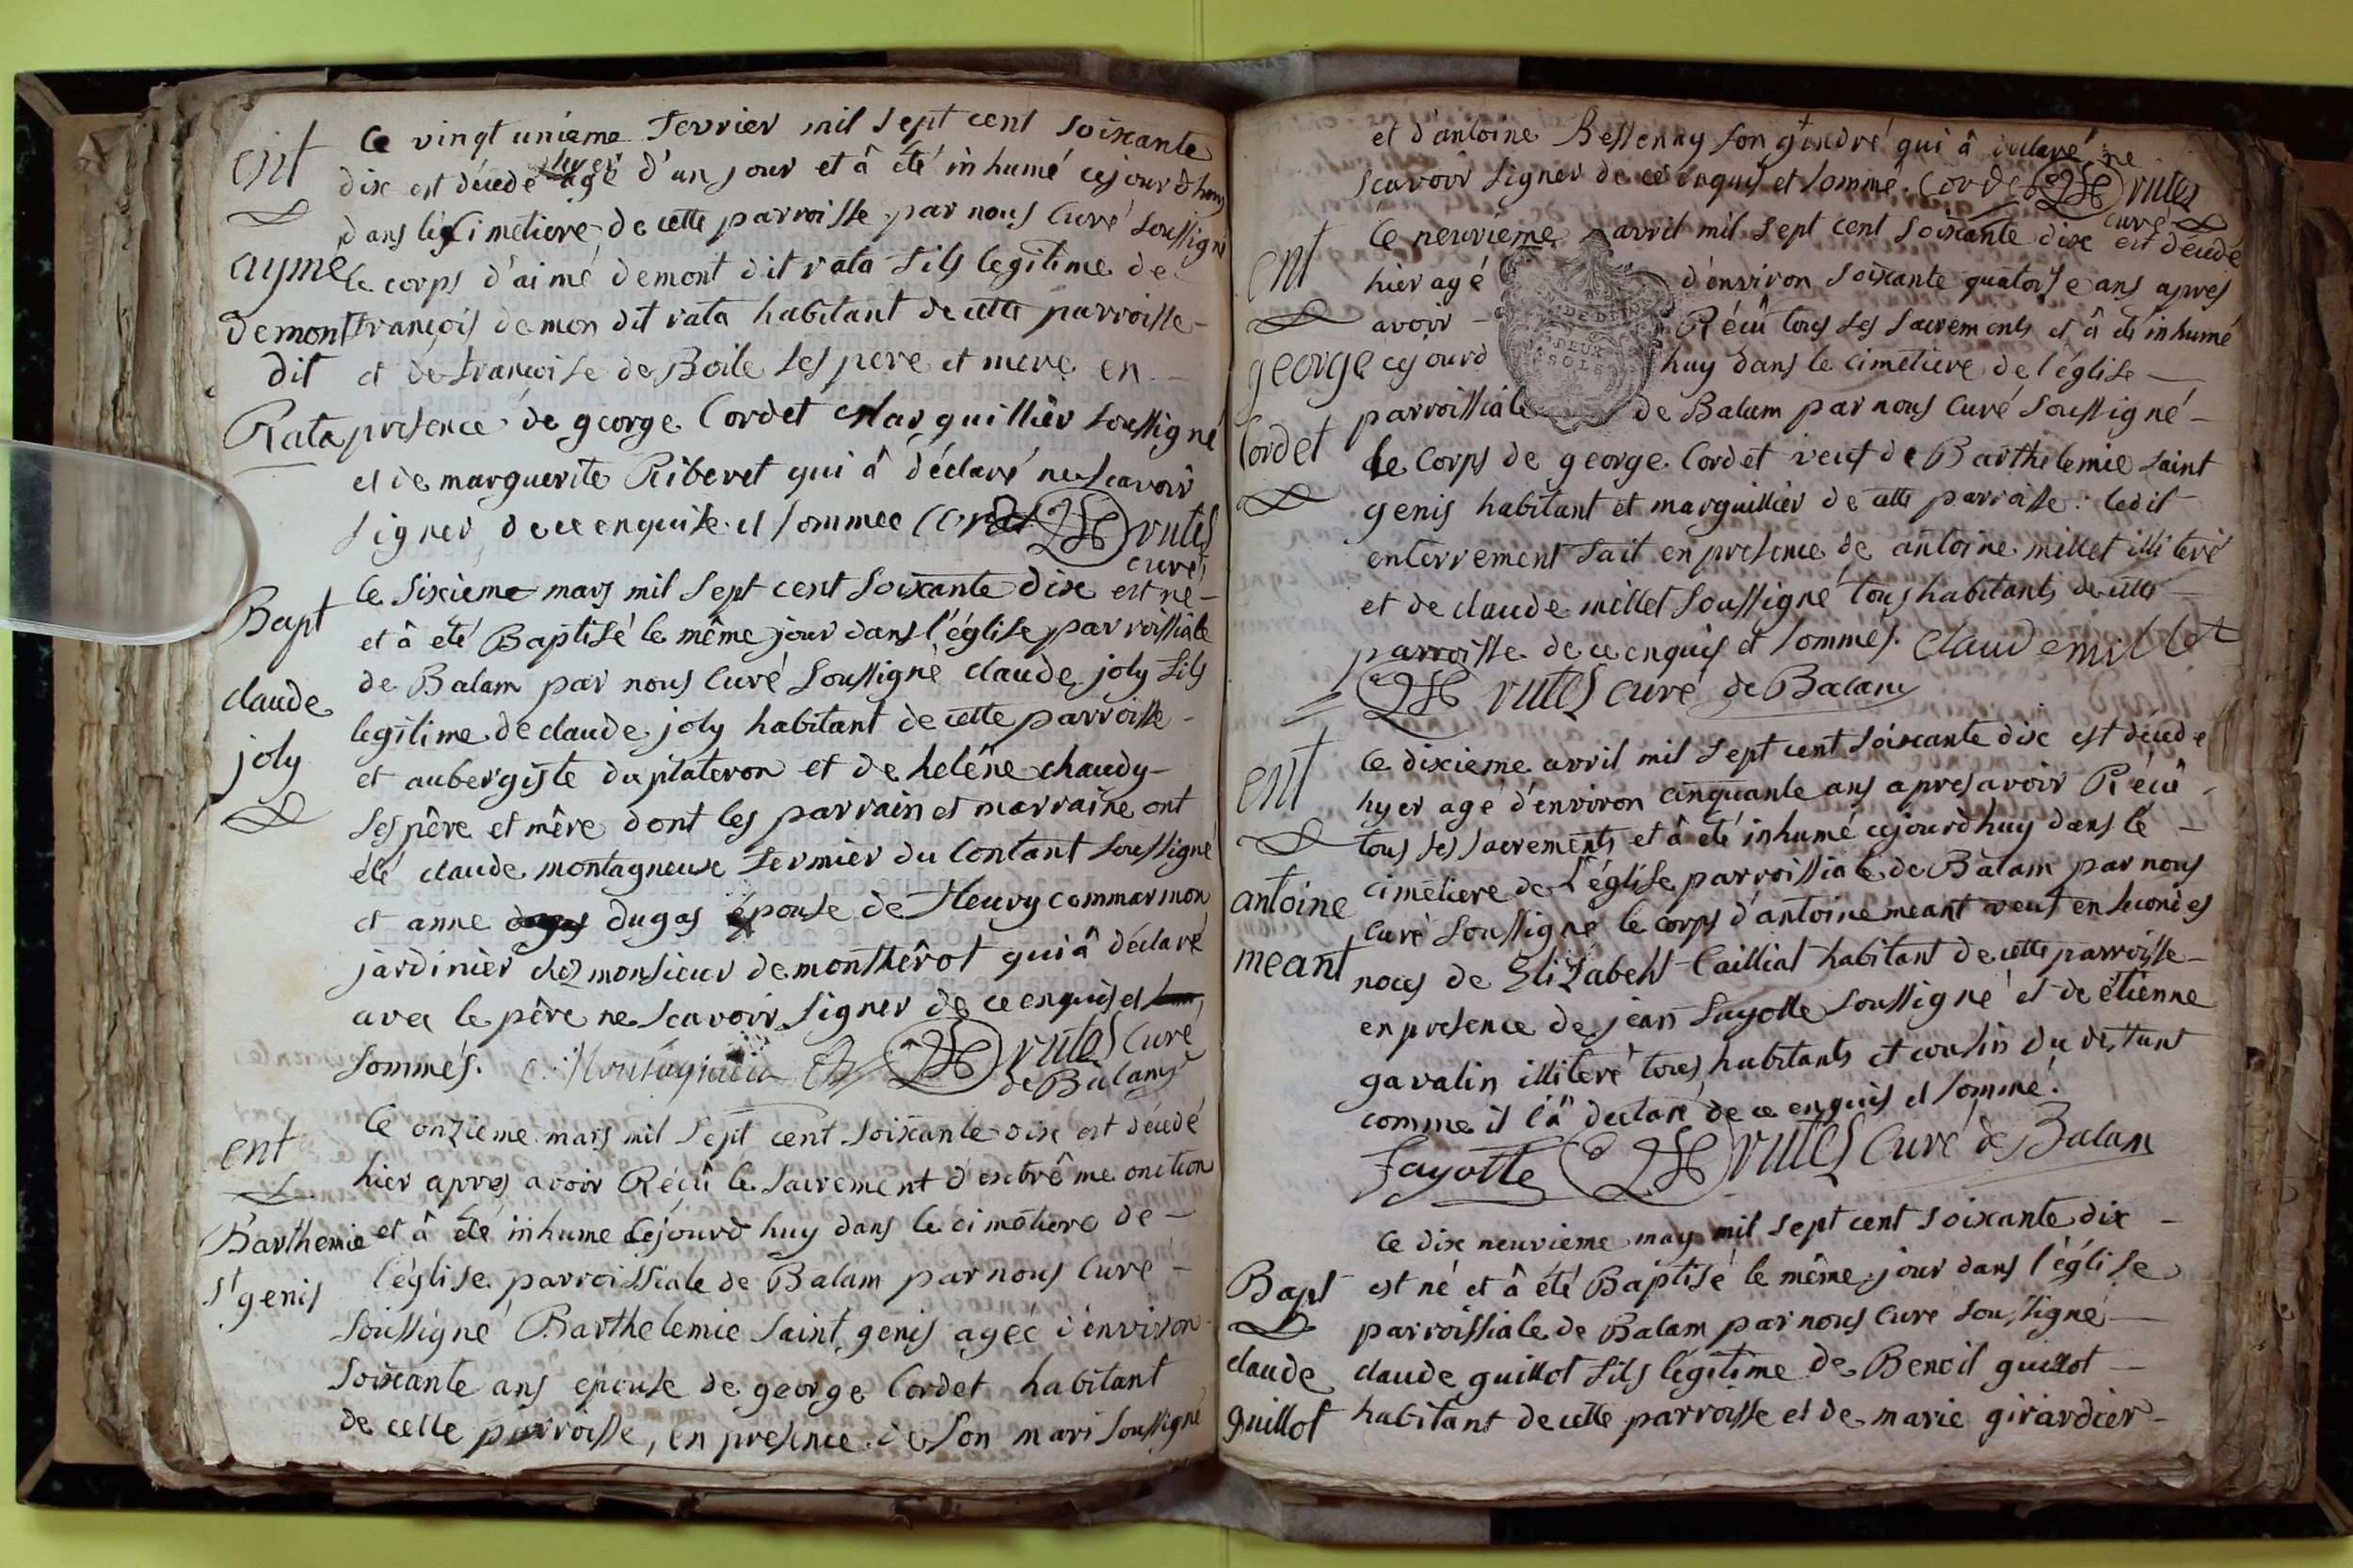 ent
aymé
demont
dit
Rata
Le vingt unième fevrier mil sept cent soixante
dix est décédé hyer agé d'un jour et â été inhumé cejourdhuy
dans le Cimetiere de cette parroisse par nous Curé soussigné
le corps d'aimé demont dit rata fils legitime de
François demon dit rata habitant de cette parroisse
et de Françoise de Boile ses pere et mere en
presence de george Cordet Marguillier soussigné
et de marguerite Riberet qui â déclaré ne scavoir
signer de ce enquise et sommee Cordet rutes
curé
Bapt
claude
joly
le sixieme mars mil sept cent soixante dix est né
et â été Baptisé le même jour dans l'église parroissiale
de Balam par nous Curé soussigné claude joly fils
legitime de claude joly habitant de cette parroisse
et aubergiste du plateron et de heléne chaudy
ses pêre et mêre dont les parrain et marraine ont
été claude montagneux fermier du Contant soussigné
et anne dugas épouse de Fleury commarmon
jardinier chez monsieur de montherot qui â déclaré
avec le pêre ne scavoir signer de ce enquis et
sommés. C. Montagneux rutes Curé
de Balam
ent
Barthemie
St genis
Le onzieme mars mil sept cent soixante dix est décédé
hier apres avoir Réçû le sacrement d'extrême onction
et â été inhume cejourd huy dans le cimetiere de
l'église parroissiale de Balam par nous Curé
soussigné Barthelemie saint genis agéé d'environ
soixante ans épouse de george Cordet habitant
de cette parroisse, en presence de son mari soussigné
et d'antoine Bessenay son gendre qui â declaré ne
scavoir signer de ce enquis et sommé. Cordet rutes
curé
ent
george
Cordet
Le neuvieme avril mil sept cent soixante dix est décédé
hier agé d'environ soixante quatorse ans apres
avoir Réçû tous ses sacrements et â été inhumé
cejourd huy dans le cimetiere de l'église
parroissiale de Balam par nous Curé soussigné
Le Corps de george Cordet veuf de Barthelemie saint
genis habitant et marguillier de cette parroisse: ledit
enterrement fait en presence de antoine millet illiteré
et de claude millet soussigné tous habitants de cette
parroisse de ce enquis et sommés. Claude millet
rutes curé de Balam
ent
antoine
meant
Le dixieme avril mil sept cent soixante dix est décédé
hyer agé d'environ cinquante ans apres avoir Réçû
tous ses sacrements et â été inhumé cejourdhuy dans le
cimetiere de l'église parroissiale de Balam par nous
Curé soussigné le corps d'antoine meant veuf en secondes
noces de Elizabeht Cailliat habitant de cette parroisse
en presence de jean fayolle soussigné et de étienne
gavalin illiteré tous habitants et cousin du deffunt
comme il l'â declaré de ce enquis et sommé.
Fayotte rutes Curé de Balam
Bapt
claude
guillot
Le dix neuvieme may mil sept cent soixante dix
est né et â été Baptisé le même jour dans l'église
parroissiale de Balam par nous Curé soussigné
claude guillot fils légitime de Benoit guillot
habitant de cette parroisse et de marie girardier